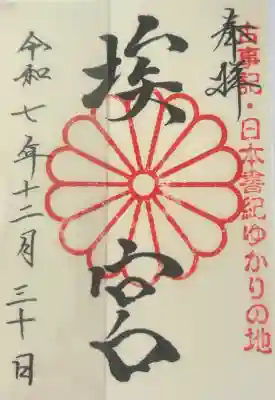 古事記・日本書紀ゆかりの地
奉拝
埃宮
令和七年十二月三十日